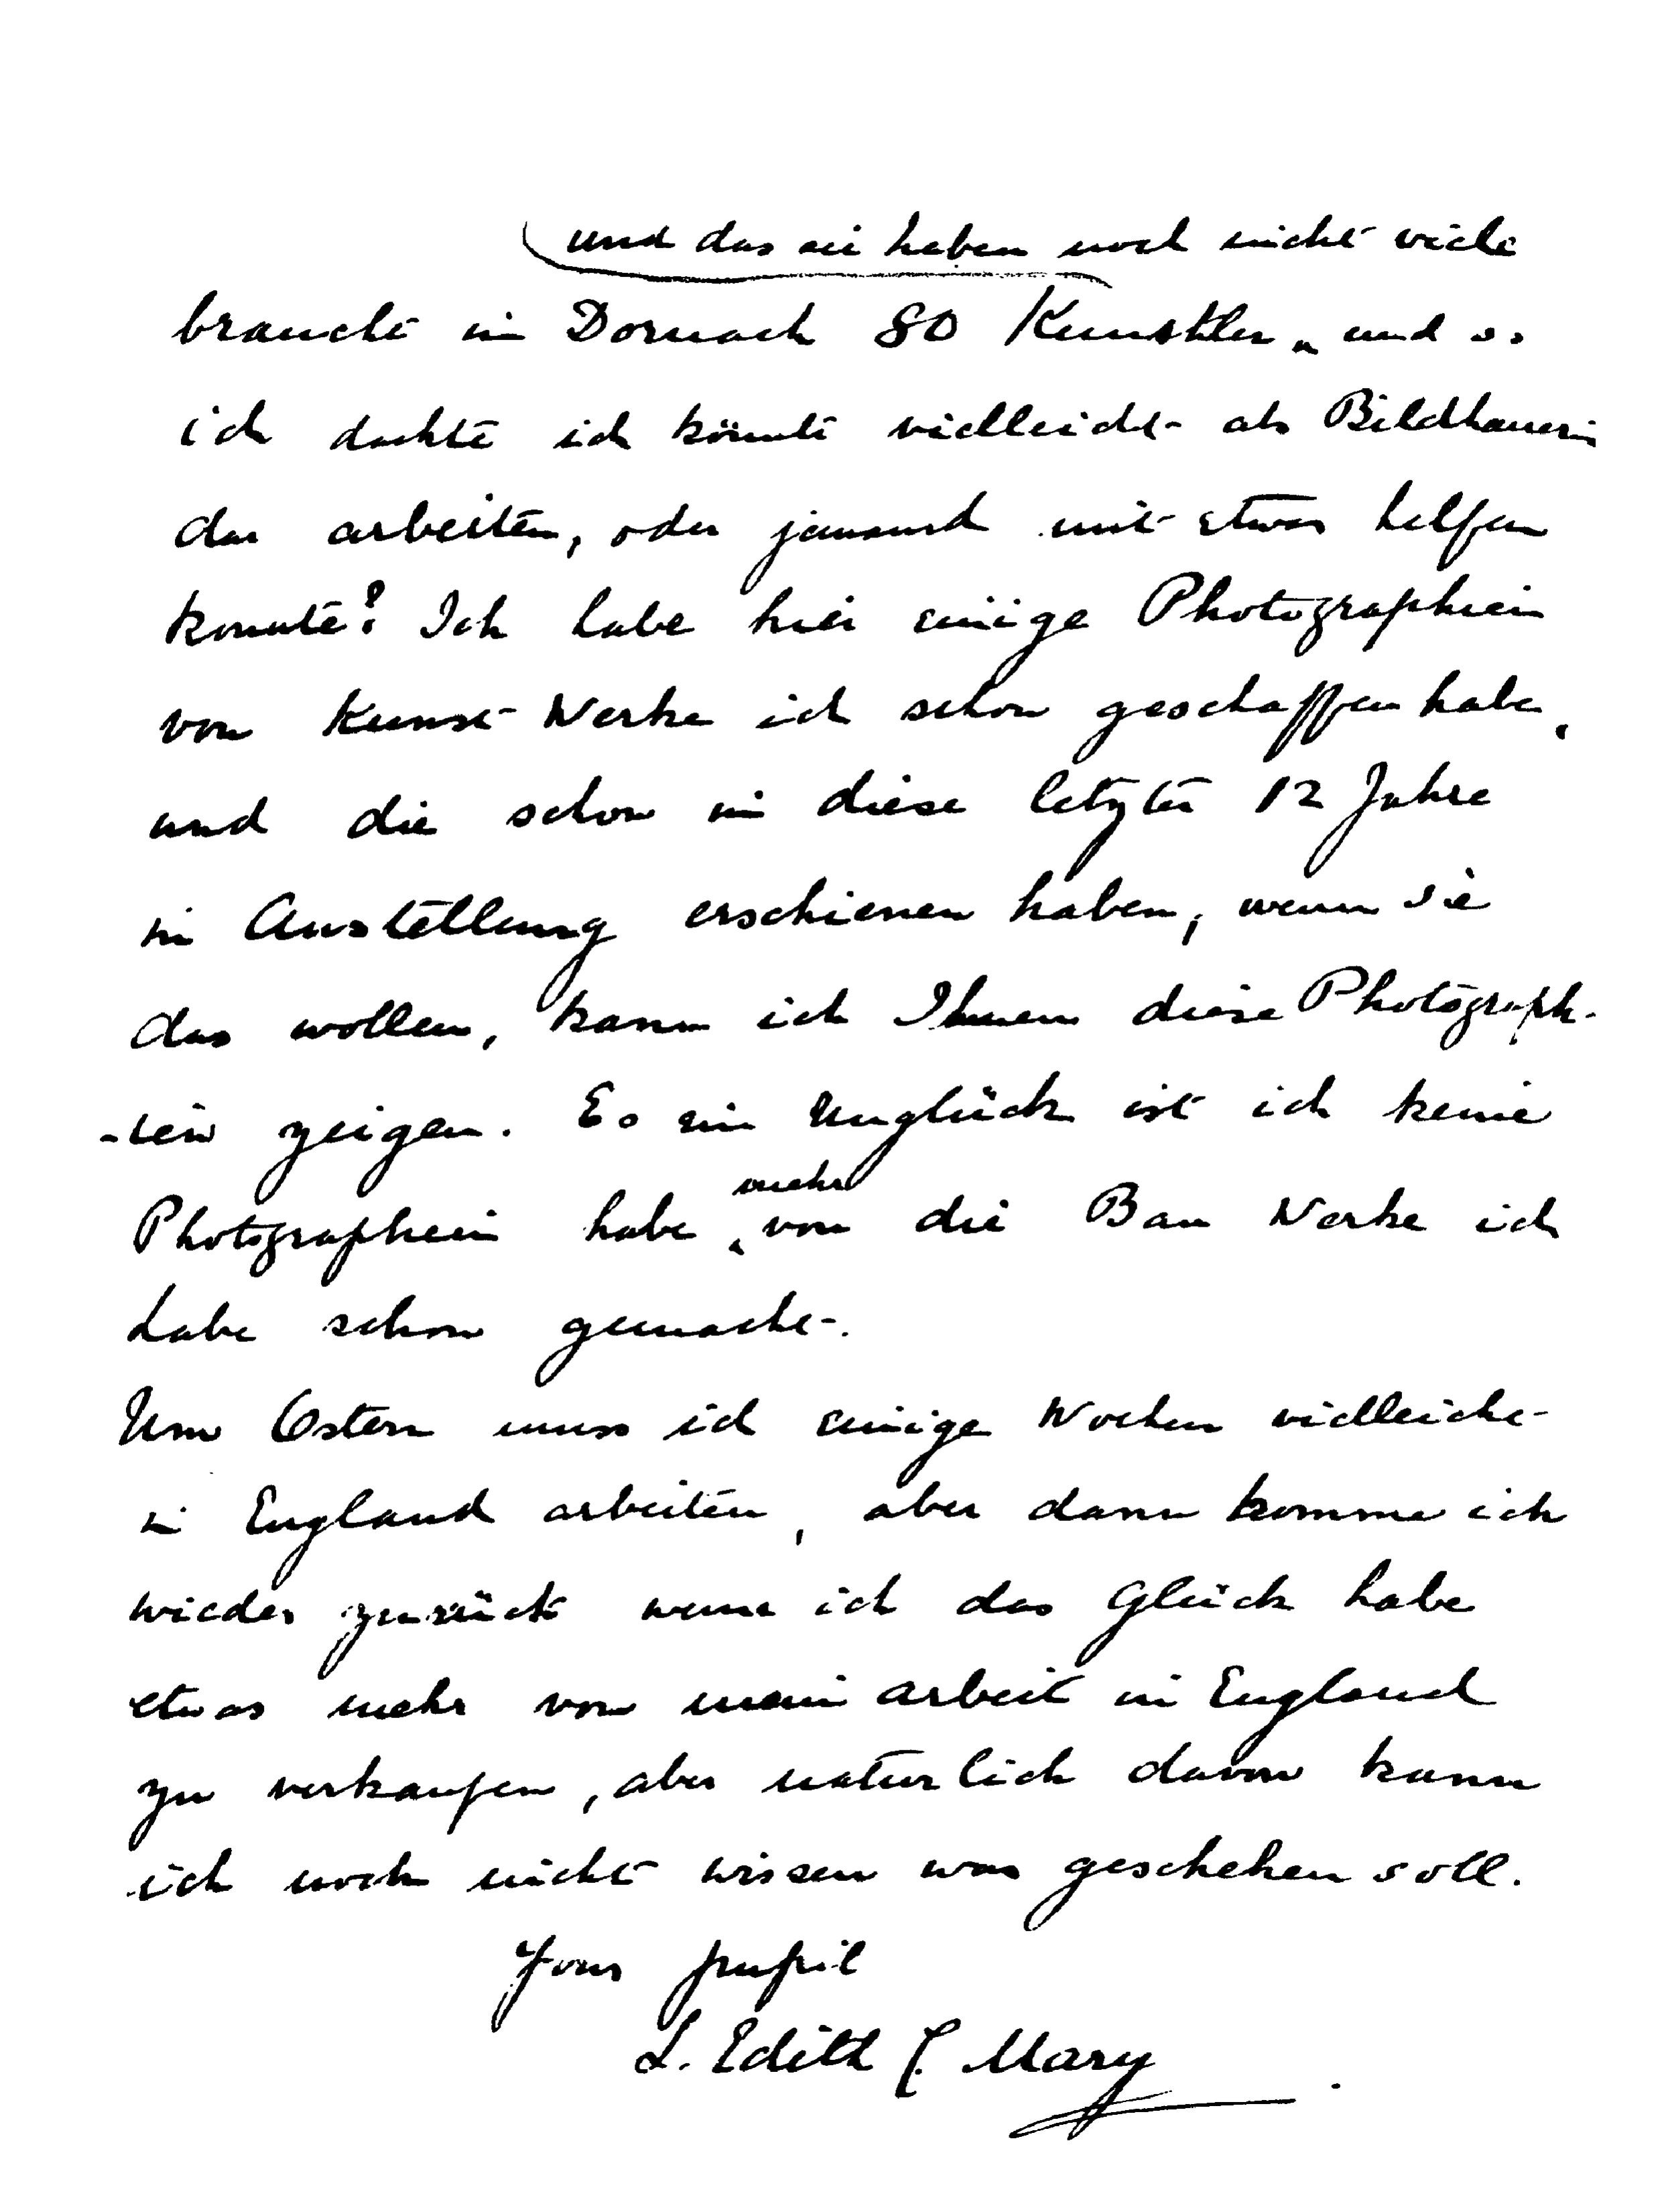 und das sie haben noch nicht viele
braucht in Dornach 80 Kunstler und so
ich dachte ich könnte vielleicht als Bildhauerin
da arbeiten, oder jemand mit etwas helfen
konnte? Ich habe hier einige Photographien
von Kunst Werke ich schon geschaffen habe,
und die schon in diese letzte 12 Jahre
in Austellung erschienen haben, wenn sie
das wollen, kann ich Ihnen diese Photograph-
-ien zeigen. Es ein Unglück ist ich keine
mehr
Photographien habe von die Bau Werke ich
habe schon gemacht.
Um Ostern muss ich einige Wochen vielleicht
in England arbeiten, aber dann komme ich
wieder zurück wenn ich das Glück habe
etwas mehr von mein arbeit in England
zu verkaufen, aber naturlich davon kann
ich noch nicht wissen was geschehen soll.
Your pupil
L. Edith C. Mary